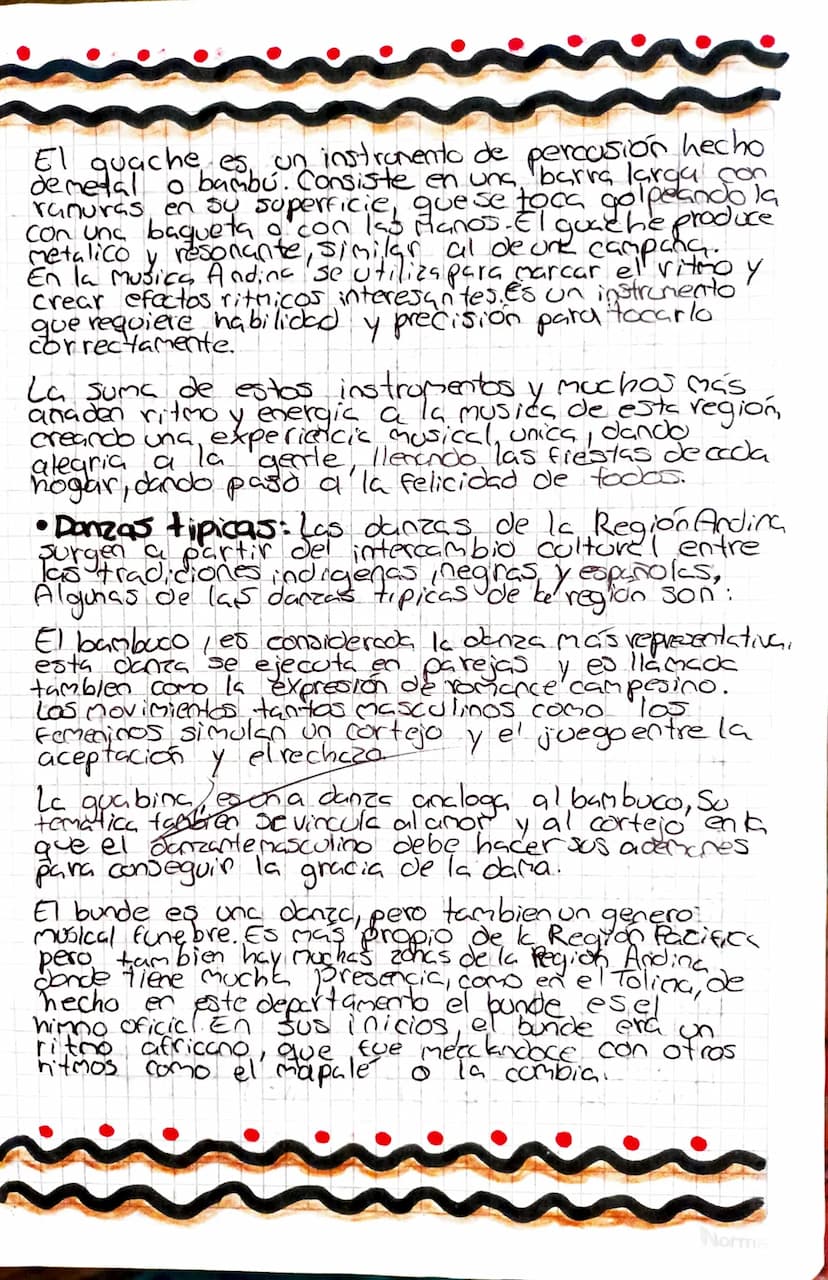 El guache es un instrumento de percusión hecho
de metal o bambú. Consiste en una barra larga con
ranuras en su superficie, que se toca golpeando la
con una baqueta o con las manos. El guache produce
metalico y resonante, similar al de una campana.
En la musica Andina se utiliza para marcar el ritmo y
crear efactos ritmicos interesantes. Es un instrumento
que requiere habilidad y precisión para tocarlo
correctamente.
La suma de estos instrumentos y muchos más
añaden ritmo y energia a la musica de esta región,
creando una experiencia musical unica, dando
alegria a la gente, llenando las fiestas de cada
hogar, dando paso a la felicidad de todos.
• Danzas tipicas: Las danzas de la Región Andina
surgen a partir del intercambio cultural entre
las tradiciones indigenas, negras y españolas,
Algunas de las danzas tipicas de la región son:
El bambuco, es considerada la danza más representativa,
esta danza se ejecuta en parejas y es llamada
tambien como la expresión de romance campesino.
Los movimientos tantos masculinos como los
femeninos simulan un cortejo y el juego entre la
aceptación y el rechazo
La guabina, es una danza analoga al bambuco, su
temática tambien se vincula al amor y al cortejo en la
que el danzante masculino debe hacer sus ademanes
para conseguir la gracia de la dama.
El bunde es una danza, pero tambien un genero
musical funebre. Es más propio de la Región Pacifica
pero tambien hay muchas zonas de la Región Andina
donde tiene mucha presencia, como en el Tolima, de
hecho en este departamento el bunde es el
himno oficial. En sus inicios, el bunde era un
ritmo africano, que fue mezclandoce con otros
ritmos como el mapale o la cumbia.
Norma